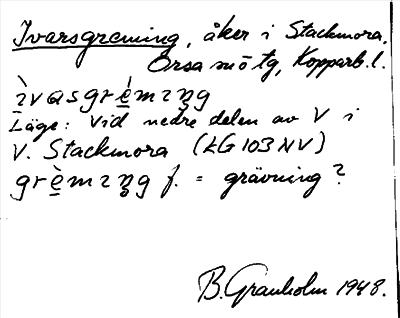 Ivarsgremning, åker i Stackmora,
Orsa sn o tg, Kopparb. l.
ìvasgrémıŋg
Läge: Vid nedre delen av V i
V. Stackmora (LG 103 NV)
grèmıŋg f. = grävning?
B. Granholm 1948.